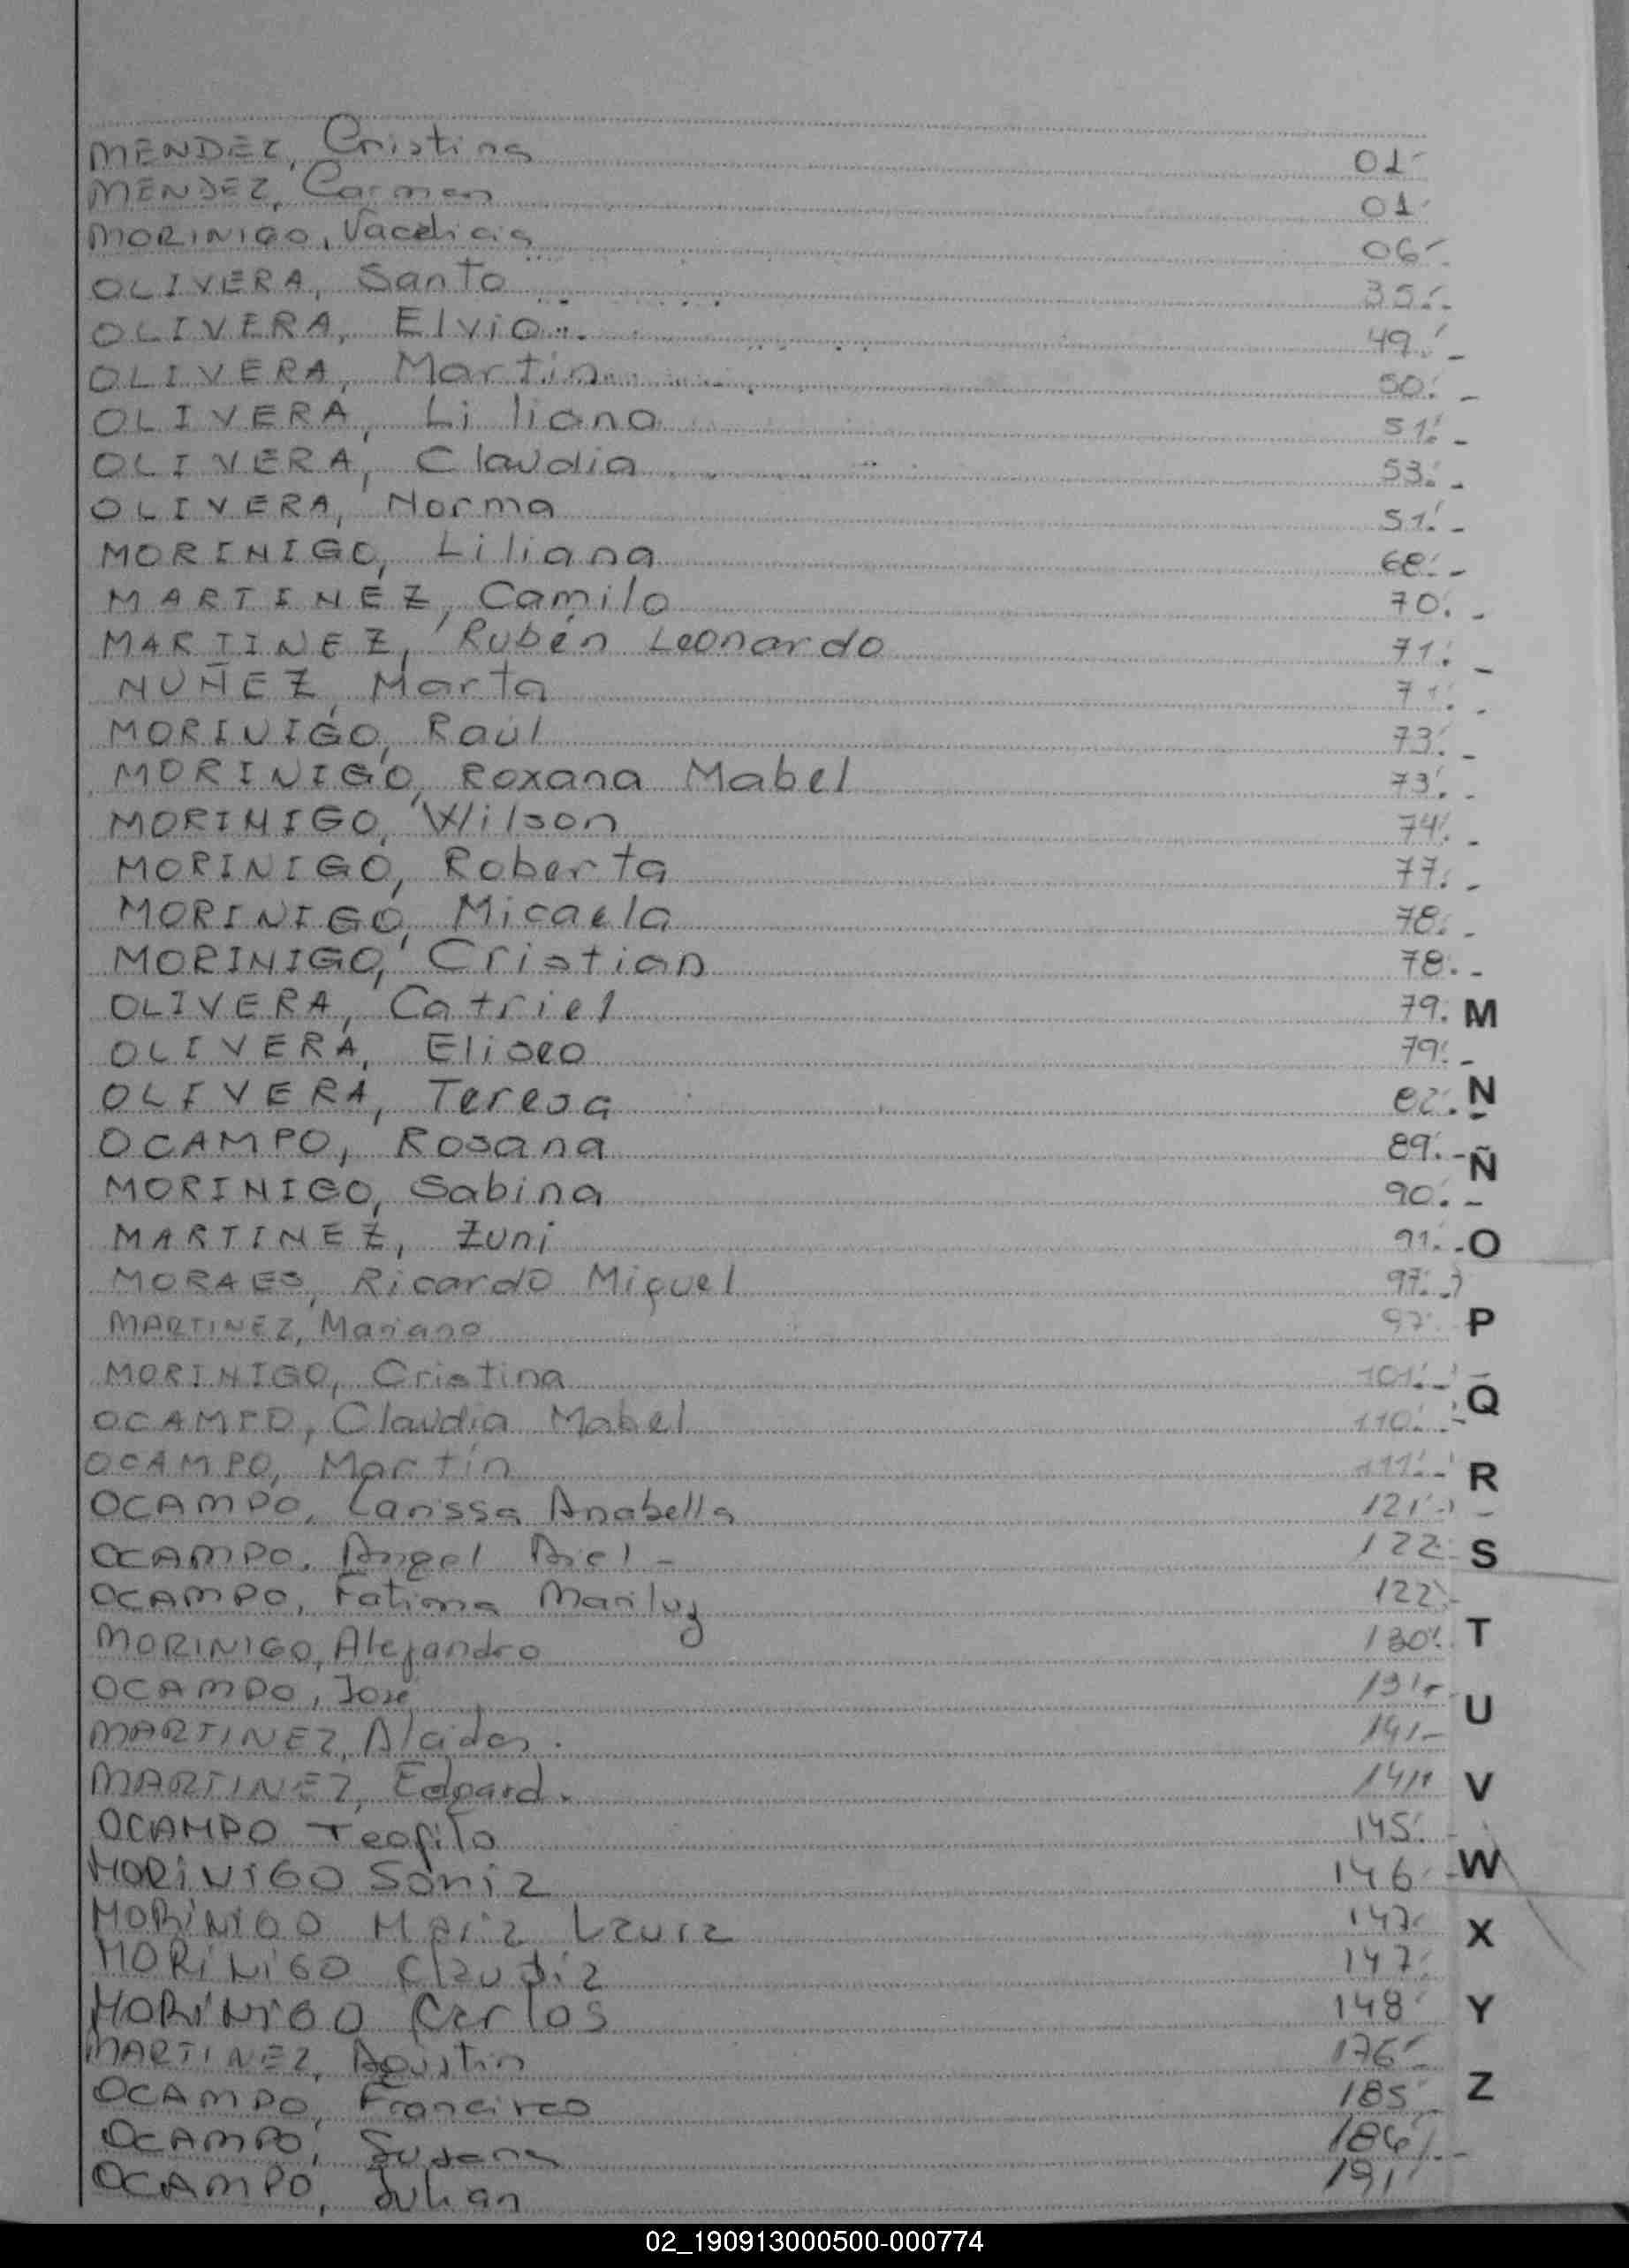 MENDEZ, Cristina 01
MENDEZ, Carmen 01
MORINIGO, 06
OLIVERA, Santo 35
OLIVERA, Elvio 49
OLIVERA, Martin 50
OLIVERA, Liliana 51
OLIVERA, Claudia 53
OLIVERA, Norma 51
MORINIGO, Liliana 68
MARTINEZ, Camilo 70
MARTINEZ, Rubén Leonardo 71
NUÑEZ, Marta 71
MORINIGO, Raúl 73
MORINIGO, Roxana Mabel 73
MORINIGO, Wilson 74
MORINIGO, Roberta 77
MORINIGO, Micaela 78
MORINIGO, Cristian 78
OLIVERA, Catriel 79 M
OLIVERA, Eliseo 79
OLIVERA, Teresa 82 N
OCAMPO, Rosana 89 Ñ
MORINIGO, Sabina 90
MARTINEZ, Zuni 91 O
MORAES, Ricardo Miguel 97
MARTINEZ, Mariano 97 P
MORINIGO, Cristina 101
OCAMPO, Claudia Mabel 110 Q
OCAMPO, Martín 111 R
OCAMPO, Larissa Anabella 121
OCAMPO, Angel Ariel 122 S
OCAMPO, Fatima Mariluz 122
MORINIGO, Alejandro 130 T
OCAMPO, Jose U
MARTINEZ, Alcides. 141
MARTINEZ, Edgard. 141 V
OCAMPO Teofilo 145
MORINIGO Sonia 146 W
MORINIGO Maria Laura 147 X
MORINIGO Claudia 147
MORINIGO Carlos 148 Y
MARTINEZ, Agustin 176
OCAMPO, Francisco 185 Z
OCAMPO, Susana 186
OCAMPO, Julian 191
02_190913000500-000774